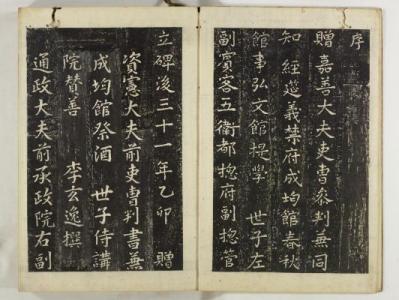 序
贈嘉善大夫吏曹叅判兼同
知經筵義禁府成均館春秋
館事弘文館提學 世子左
副賓客五衛都揔府副揔管
立碑後三十一年乙卯 贈
資憲大夫前吏曹判書兼
成均館祭酒 世子侍講
院贊善 李玄逸撰
通政大夫前承政院右副